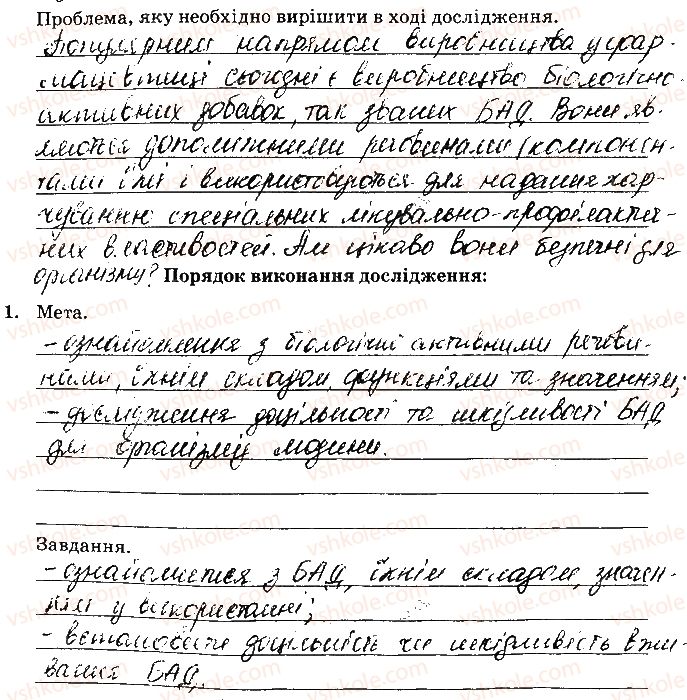 Проблема, яку необхідно вирішити в ході дослідження.
Популярним напрямом виробництва у фар-
мацевтиці сьогодні є виробництво біологічно
активних добавок, так званих БАД. Вони яв-
ляються допоміжними речовинами (компонен-
тами їжі і використовуються для надання хар-
чуванню спеціальних лікувально-профілактич-
них властивостей. Чи цікаво вони безпечні для
організму? Порядок виконання дослідження:
1. Мета.
- ознайомлення з біологічні активними речови-
нами, їхнім складом, функціями та значенням;
- дослідження доцільності та шкідливості БАД
для організму людини.
Завдання.
- ознайомитися з БАД, їхнім складом, значен-
ням у використанні;
- встановити доцільність чи шкідливість вжи-
вання БАД.